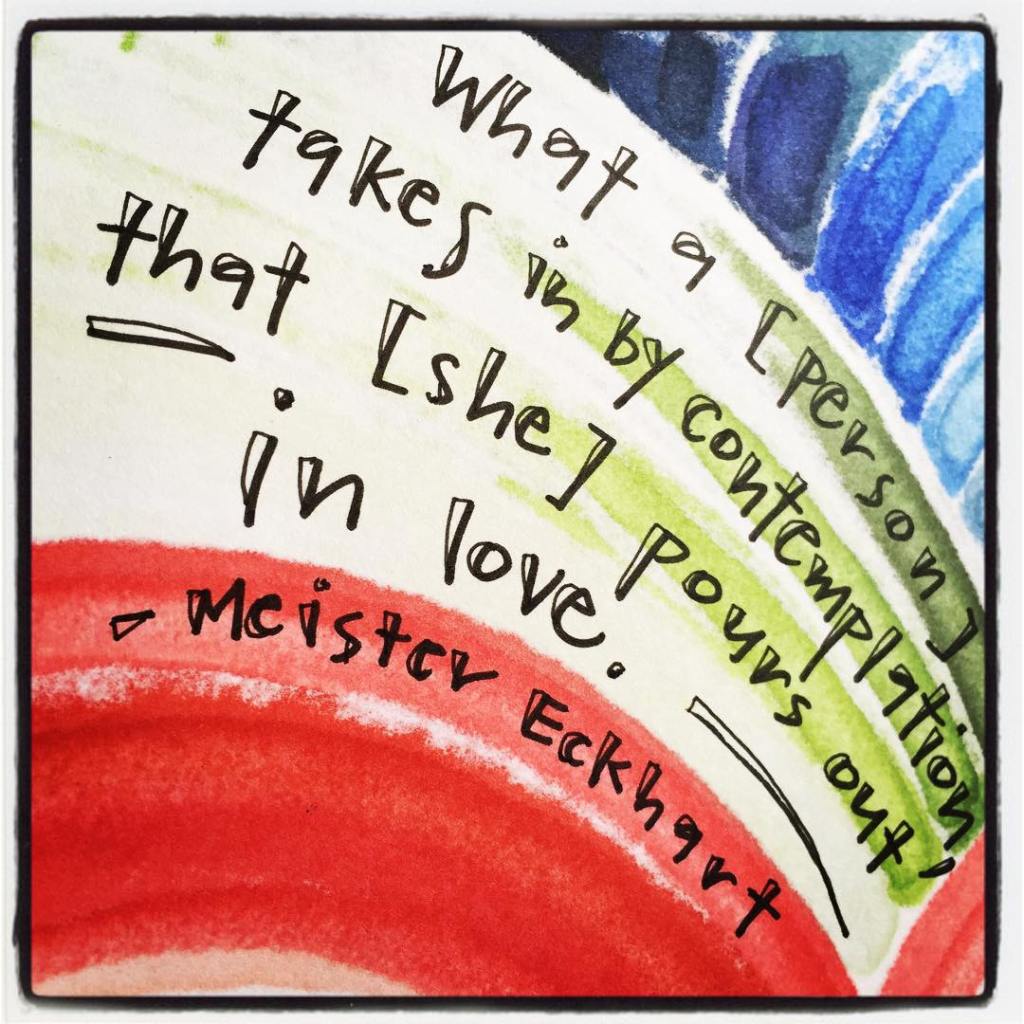 What a [person]
takes in by contemplation,
that [she] pours out
in love.
- Meister Eckhart